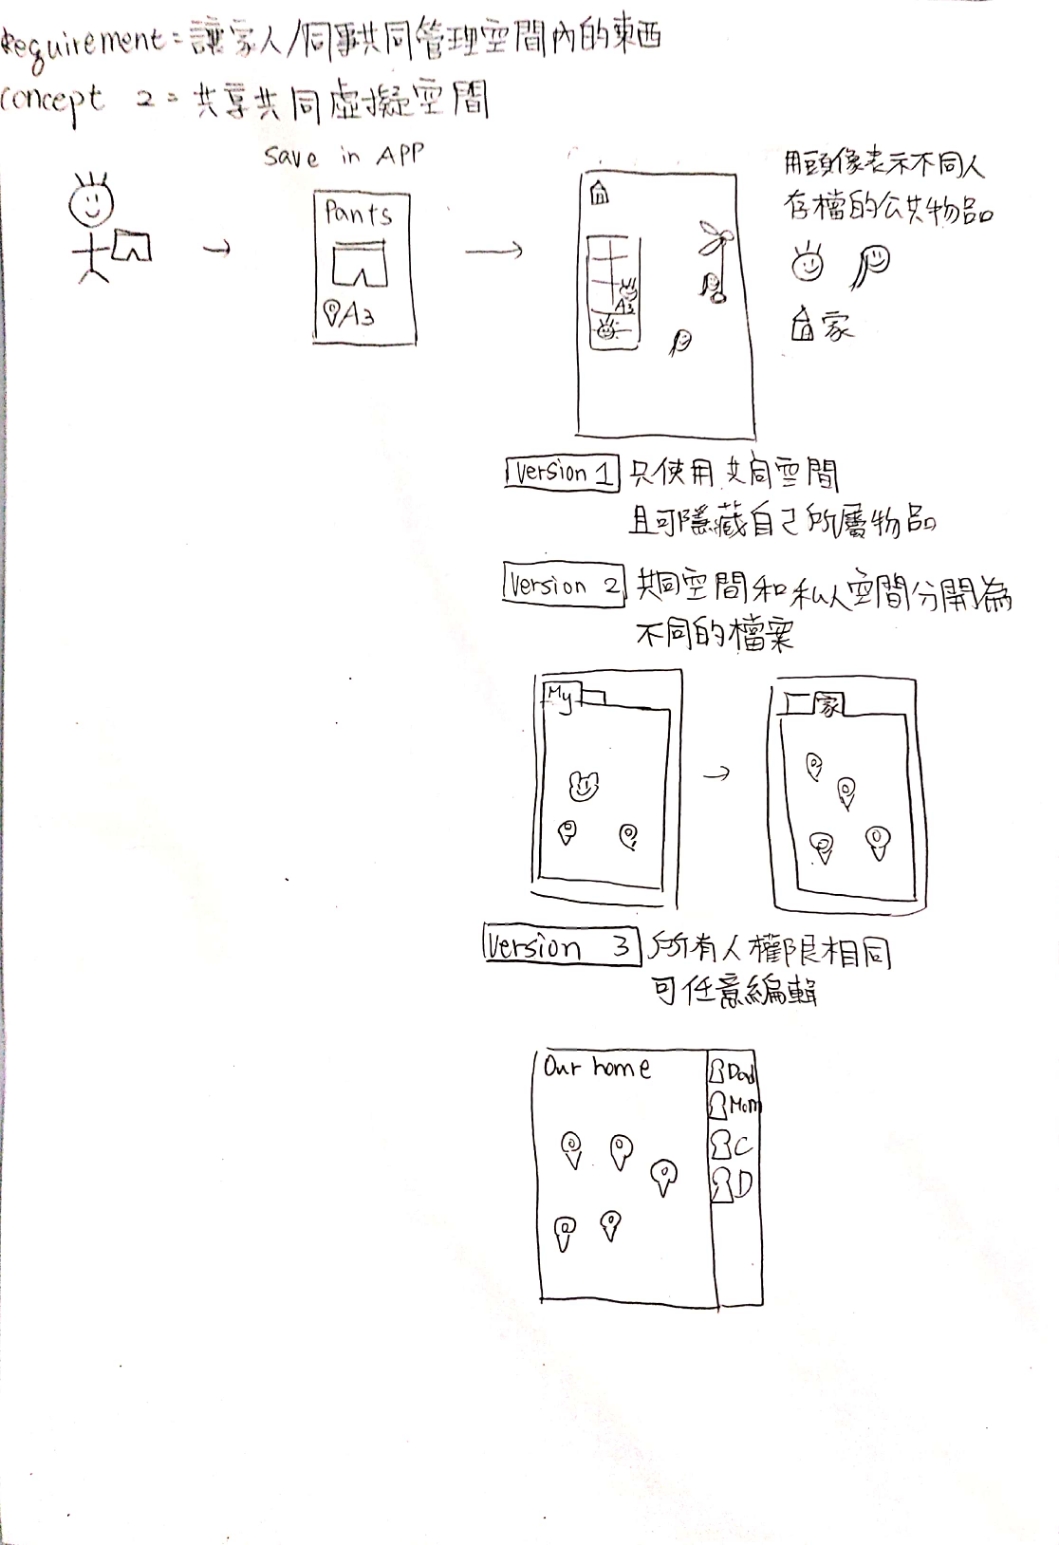 Requirement = 讓家人/同事共同管理空間內的東西
Concept 2 = 共享共同虛擬空間
Save in APP
Pants
A3
A3
用頭像表示不同人
存檔的公共物品。
家
Version 1 只使用共同空間
且可隱藏自己所屬物品。
Version 2 共同空間和私人空間分開為
不同的檔案
My
家
Version 3 所有人權限相同
可任意編輯
Our home
Dad
Mom
C
D